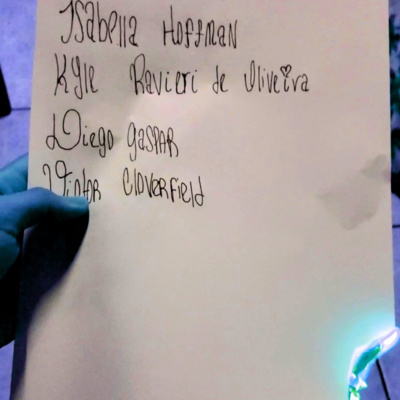 Isabella Hoffman
Kyle Ravieri de Oliveira
Diego Gaspar
Victor Cloverfield